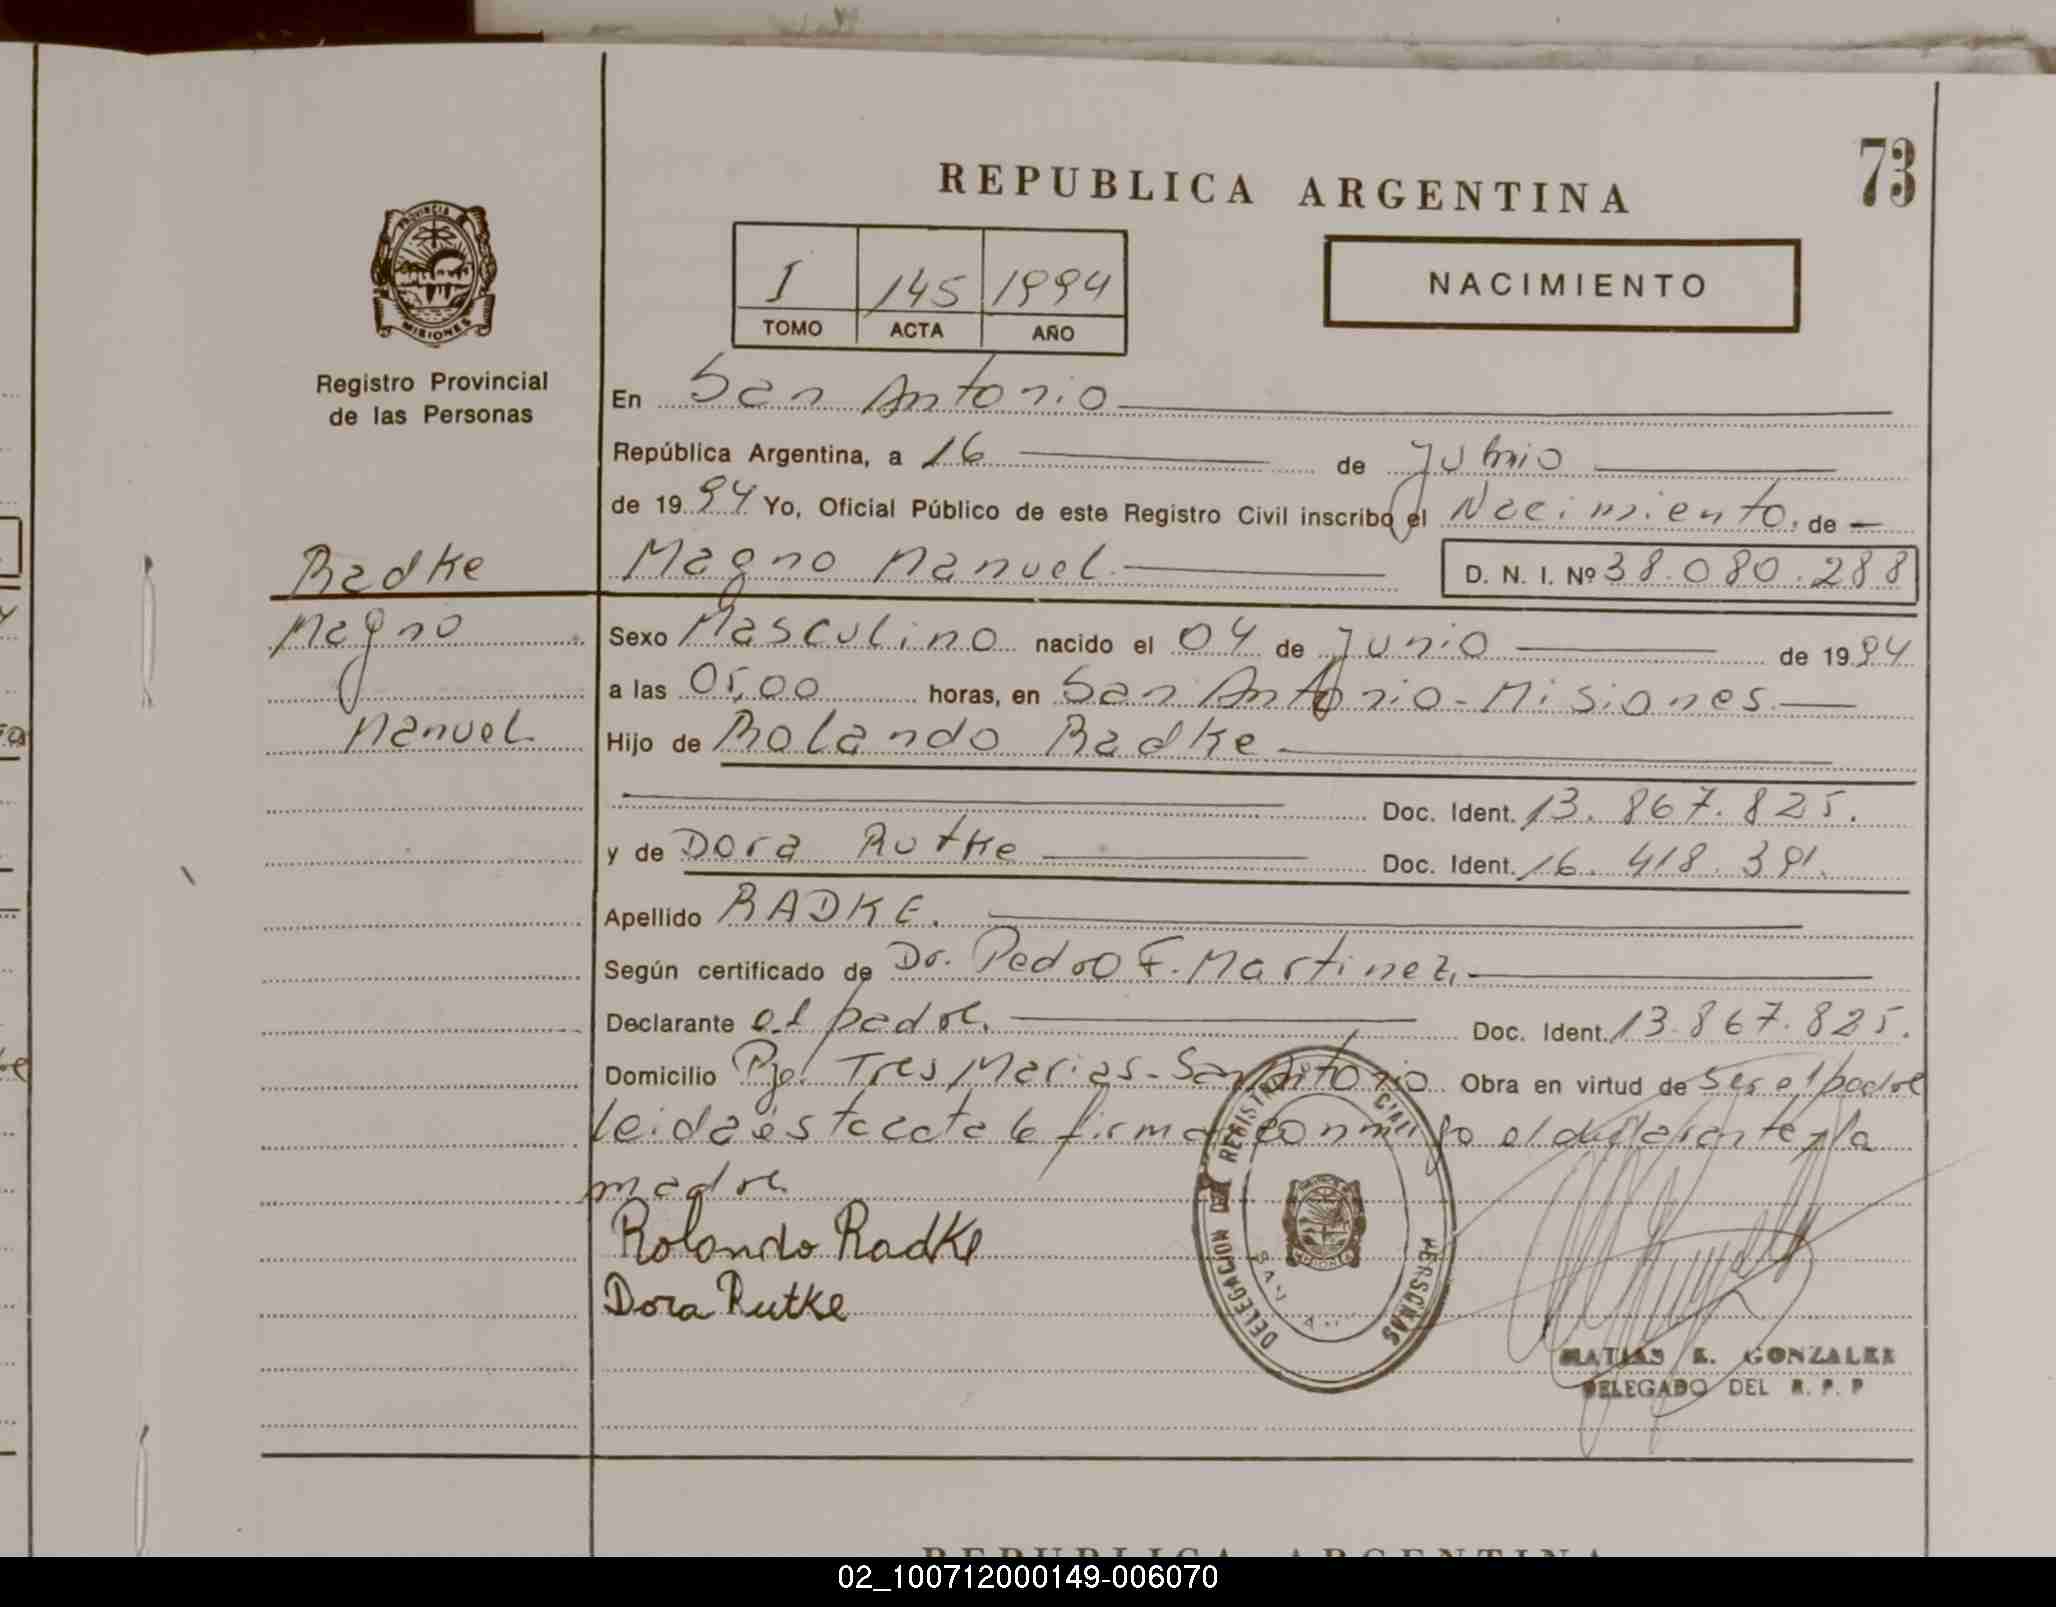 73
REPUBLICA ARGENTINA
NACIMIENTO
I 145 1994
TOMO ACTA AÑO
PROVINCIA
MISIONES
Registro Provincial
de las Personas
En San Antonio
República Argentina, a 16 de Junio
de 1994 Yo, Oficial Público de este Registro Civil inscribo el Nacimiento. de
Radke
Magno
Manuel
Magno Manuel D. N. I. Nº 38.080.288
Sexo Masculino nacido el 04 de Junio de 1994
a las 05,00 horas, en San Antonio - Misiones
Hijo de Rolando Radke
Doc. Ident. 13.867.825.
y de Dora Rutke Doc. Ident. 16.418.391.
Apellido RADKE.
Según certificado de Dr. Pedro F. Martinez,
Declarante el padre. Doc. Ident. 13.867.825.
Domicilio Pje. Tres Marias - San Antonio Obra en virtud de ser el padre
leida esta acta la firman conmigo el declarante y la
madre
Rolando Radke
Dora Rutke
DELEGACION DEL REGISTRO PERSONAS
SAN
MATIAS E. GONZALEZ
DELEGADO DEL R. P. P
REPUBLICA ARGENTINA
02_100712000149-006070